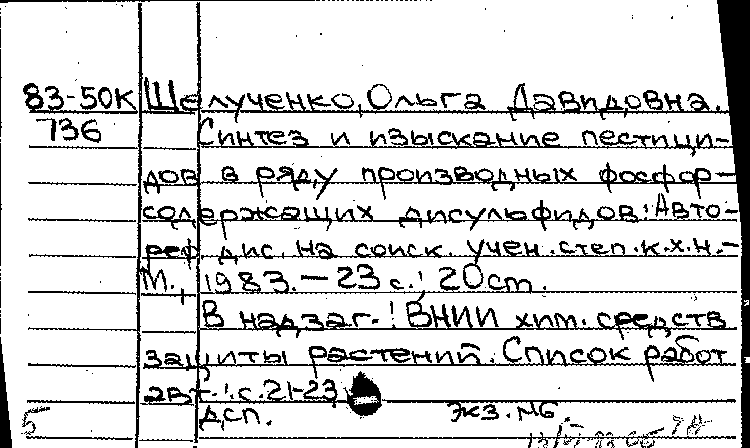 83-50К Шелученко, Ольга Давидовна.
736 Синтез и изыскание пестици-
дов в ряду производных фосфор-
содержащих дисульфидов: Авто-
реф. дис. на соиск. учен. степ. к.х.н.-
М., 1983. - 23 с.; 20 cm.
В надзаг.: ВНИИ хим. средств
защиты растений. Список работ
авт.: с. 21-23
ДСП. экз. №6.
5